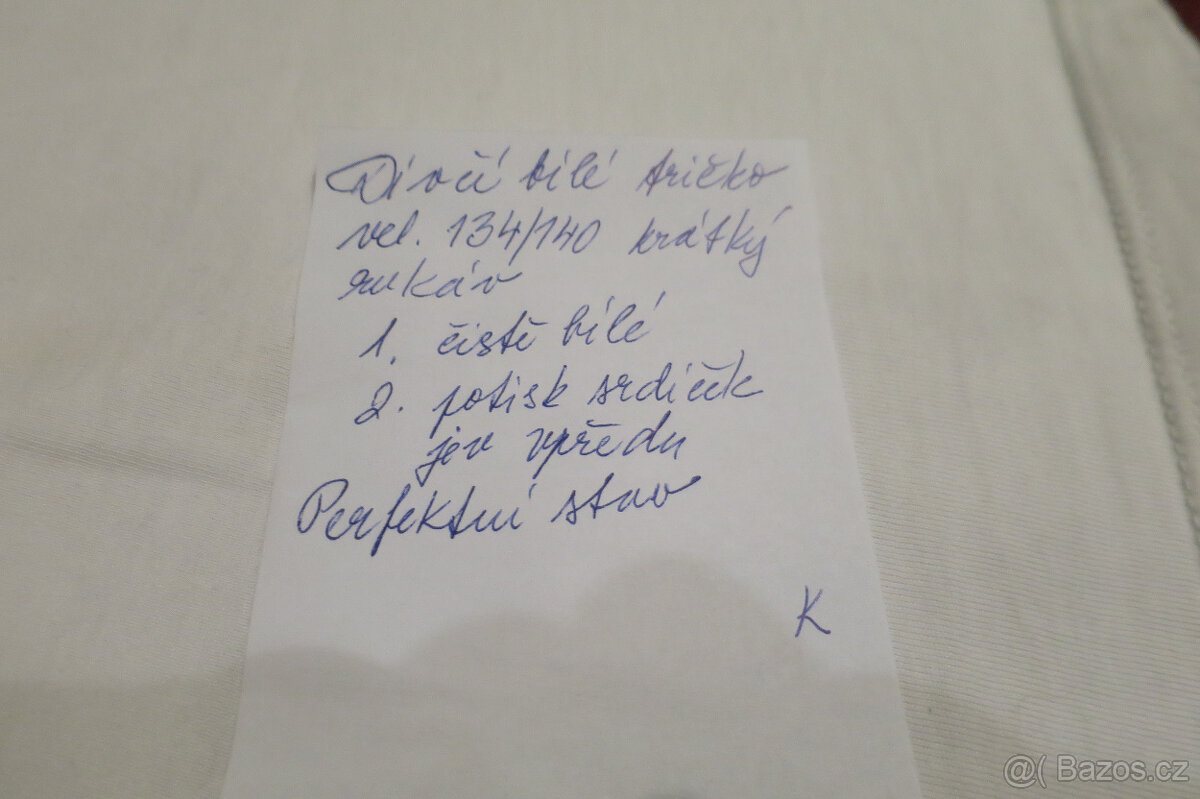 Dívčí bílé tričko
vel. 134/140 krátký
rukáv
1. čistě bílé
2. potisk srdíček
jen vpředu
Perfektní stav
K
@( Bazos.cz